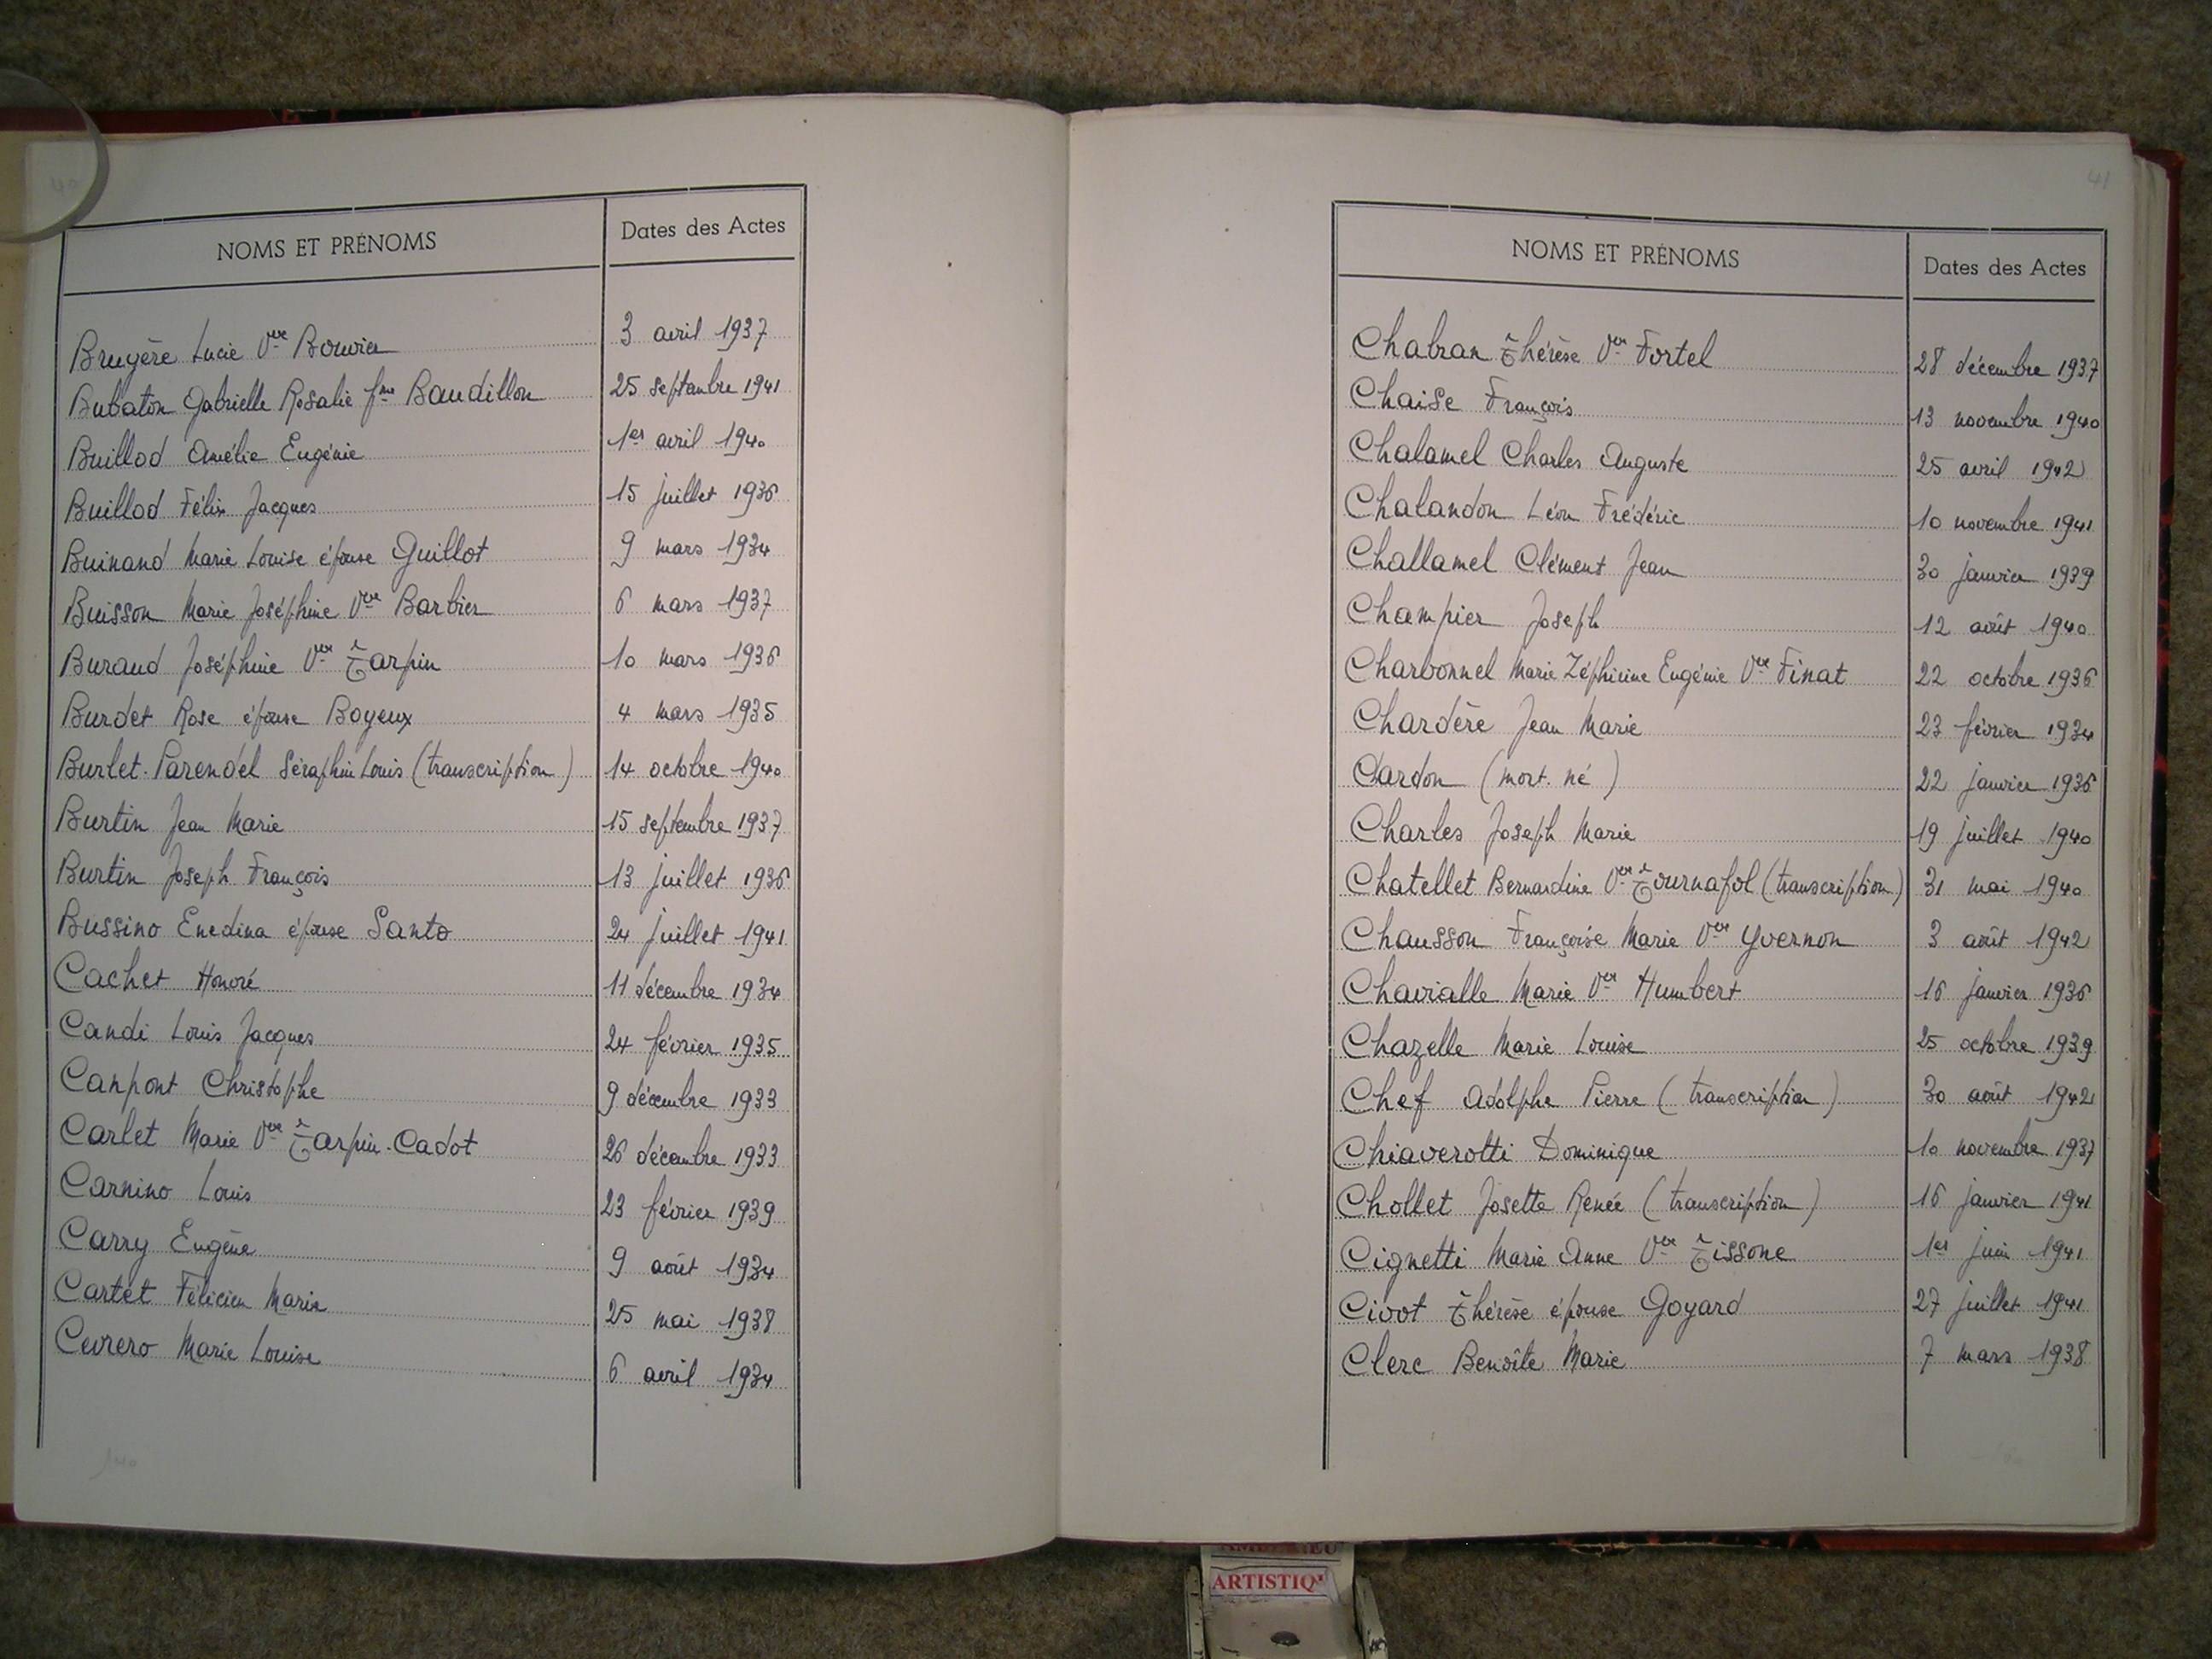 40
NOMS ET PRÉNOMS Dates des Actes
Bruyère Lucie Vve Bouvier 3 avril 1937
Bubaton Gabrielle Rosalie fme Baudillon 25 septembre 1941
Buillod Amélie Eugénie 1er avril 1940
Buillod Félix Jacques 15 juillet 1936
Buinand Marie Louise épouse Guillot 9 mars 1934
Buisson Marie Joséphine Vve Barbier 6 mars 1937
Buraud Joséphine Vve Tarpin 10 mars 1936
Burdet Rose épouse Boyeux 4 mars 1935
Burlet-Parendel Séraphin Louis (transcription) 14 octobre 1940
Burtin Jean Marie 15 septembre 1937
Burtin Joseph François 13 juillet 1936
Bussino Enedina épouse Santo 24 juillet 1941
Cachet Honoré 11 décembre 1934
Candi Louis Jacques 24 février 1935
Canpont Christophe 9 décembre 1933
Carlet Marie Vve Tarpin-Cadot 26 décembre 1933
Carnino Louis 23 février 1939
Carry Eugène 9 août 1934
Cartet Félicien Marie 25 mai 1938
Cevrero Marie Louise 6 avril 1934
41
NOMS ET PRÉNOMS Dates des Actes
Chabran Thérèse Vve Fortel 28 décembre 1937
Chaise François 13 novembre 1940
Chalamel Charles Auguste 25 avril 1942
Chalandon Léon Frédéric 10 novembre 1941
Challamel Clément Jean 30 janvier 1939
Champier Joseph 12 août 1940
Charbonnel Marie Zéphirine Eugénie Vve Finat 22 octobre 1936
Chardère Jean Marie 23 février 1934
Chardon (mort-né) 22 janvier 1936
Charles Joseph Marie 19 juillet 1940
Chatellet Bernardine Vve Tournafol (transcription) 31 mai 1940
Chausson Françoise Marie Vve Yvernon 3 août 1942
Chavialle Marie Vve Humbert 16 janvier 1936
Chazelle Marie Louise 25 octobre 1939
Chef Adolphe Pierre (transcription) 30 août 1942
Chiaverotti Dominique 10 novembre 1937
Chollet Josette Renée (transcription) 16 janvier 1941
Cignetti Marie Anne Vve Tissone 1er juin 1941
Civot Thérèse épouse Goyard 27 juillet 1941
Clerc Benoîte Marie 7 mars 1938
ARTISTIQ